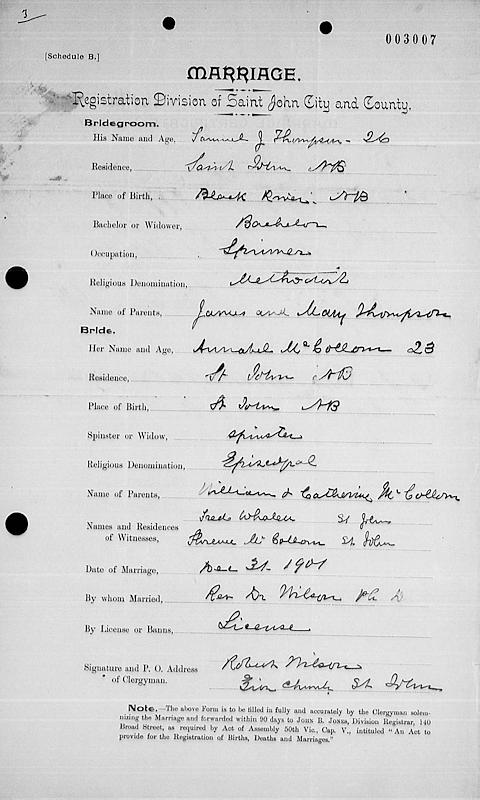 3
003007
[Schedule B.]
MARRIAGE.
Registration Division of Saint John City and County.
Bridegroom.
His Name and Age, Samuel J Thompson - 26
Residence, Saint John NB
Place of Birth, Black River. NB
Bachelor or Widower, Bachelor
Occupation,
Religious Denomination, Methodist
Name of Parents, James and Mary Thompson
Bride.
Her Name and Age, Annabel McCollom 23
Residence, St John NB
Place of Birth, St John NB
Spinster or Widow, spinster
Religious Denomination, Episcopal
Name of Parents, William & Catherine McCollom
Names and Residences of Witnesses, Fred Whalen St John
Florence McCollom St John
Date of Marriage, Dec 31. 1901
By whom Married, Rev Dr Wilson Ph D
By License or Banns, License
Signature and P. O. Address of Clergyman. Robert Wilson
Zion Church St John
Note.—The above Form is to be filled in fully and accurately by the Clergyman solem-
nizing the Marriage and forwarded within 90 days to JOHN B. JONES, Division Registrar, 140
Broad Street, as required by Act of Assembly 50th Vic., Cap. V., intituled "An Act to
provide for the Registration of Births, Deaths and Marriages."